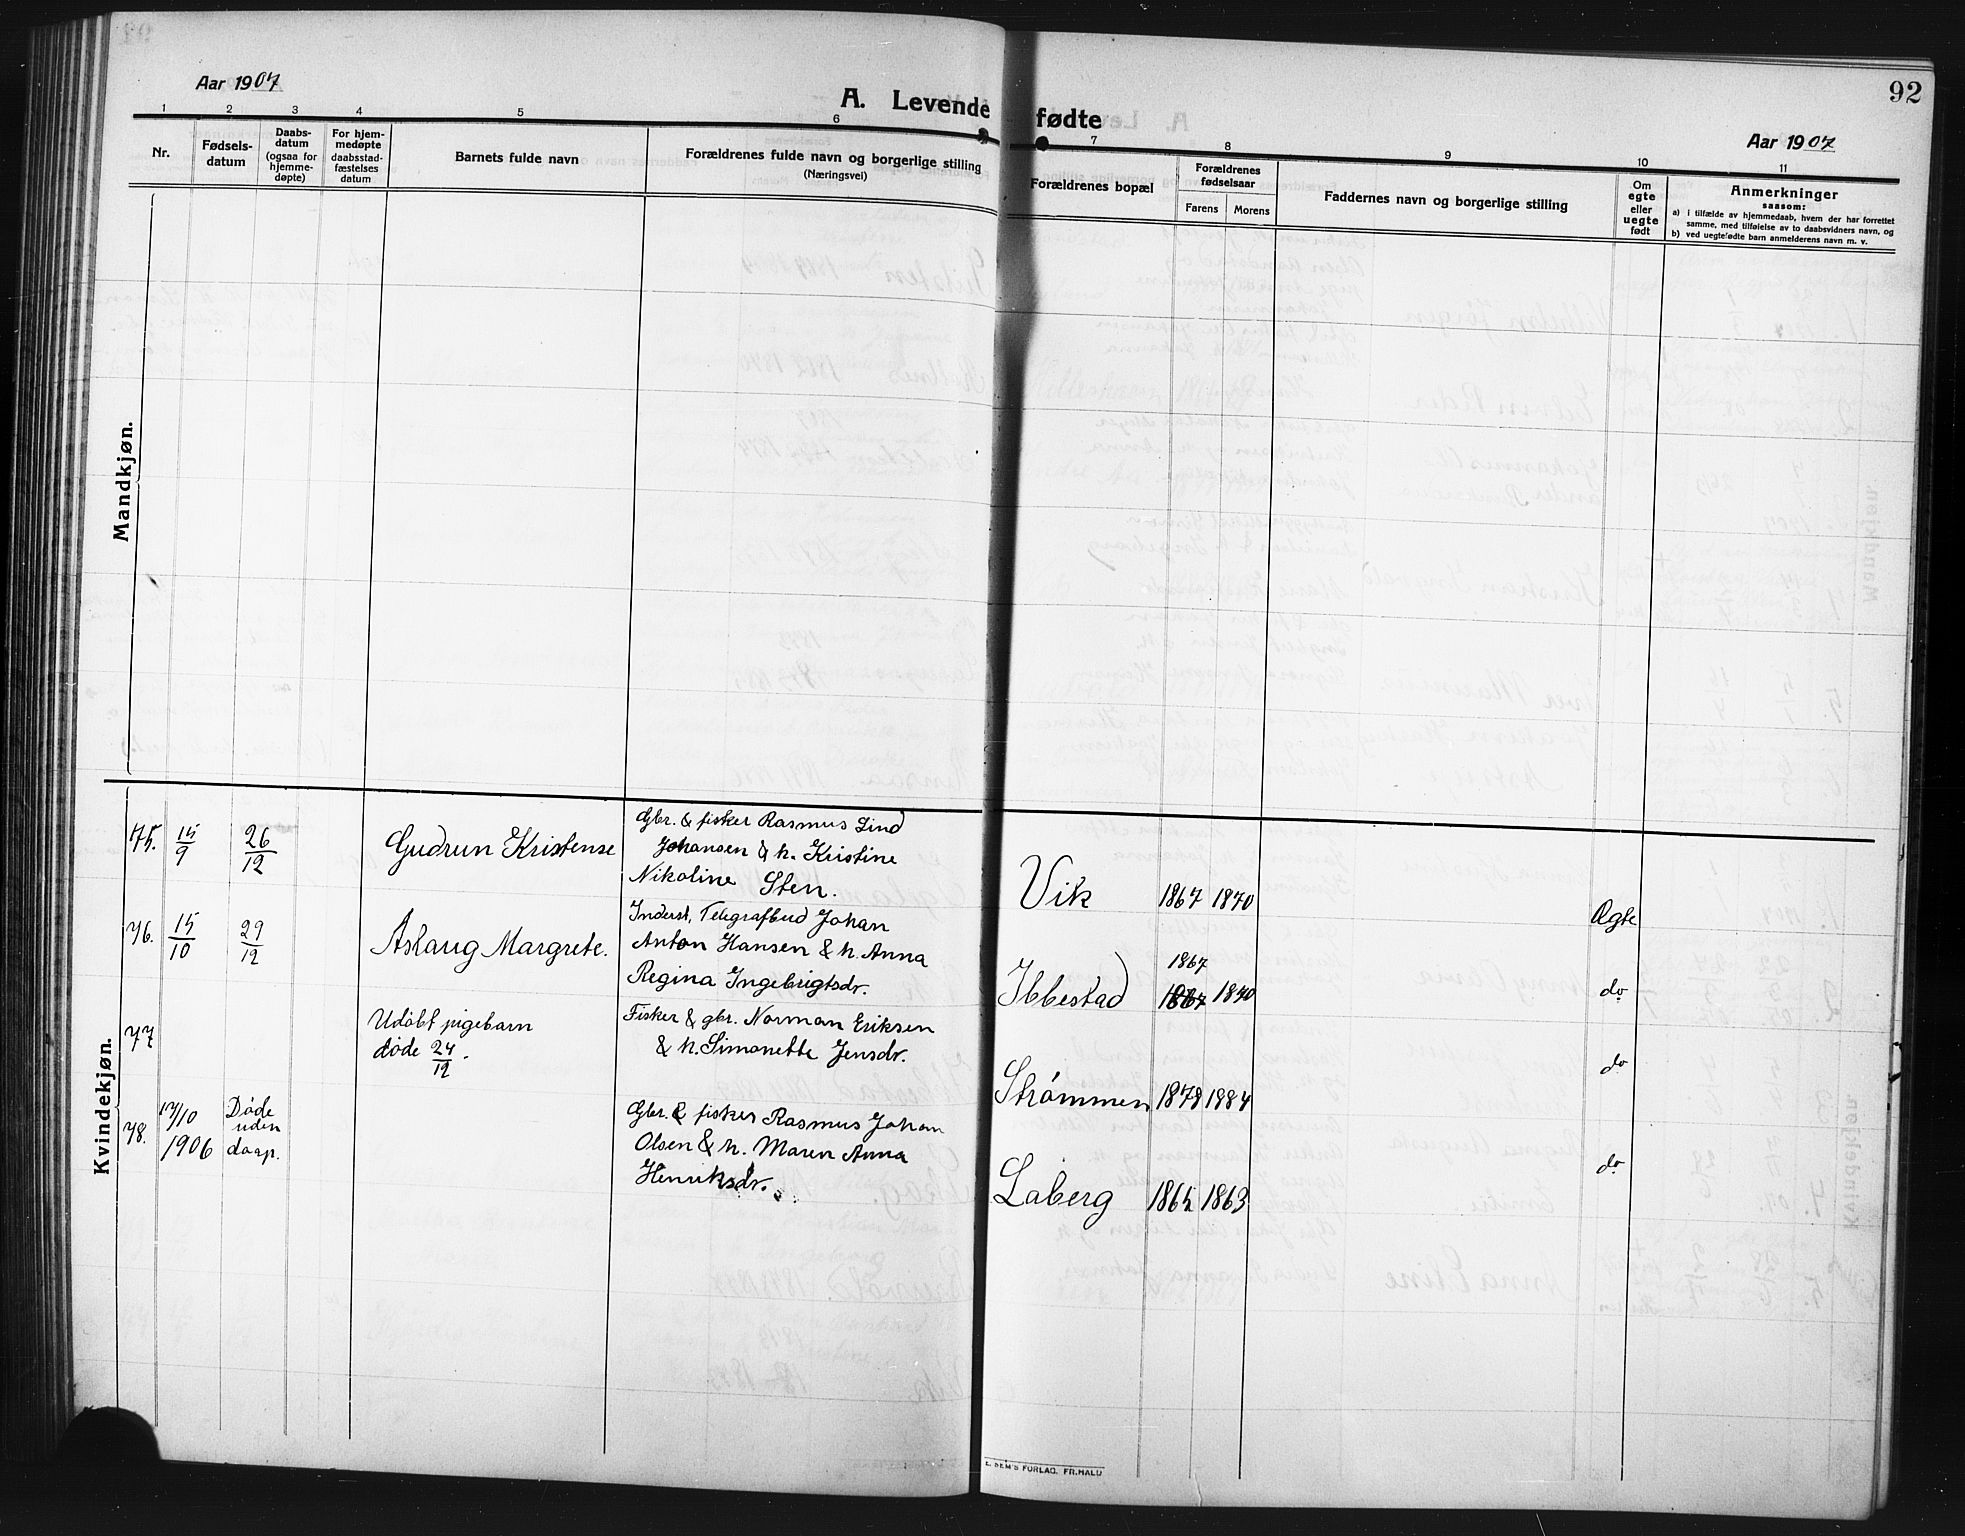 92
Aar 1907
A. Levende fødte
Aar 1907
1 2 3 4 5 6 7 8 9 10 11
Nr.
Fødsels-
datum
Daabs-
datum
(ogsaa for
hjemme-
døpte)
For hjem-
medøpte
daabsstad-
fæstelses
datum
Barnets fulde navn
Forældrenes fulde navn og borgerlige stilling
(Næringsvei)
Forældrenes bopæl
Forældrenes
fødselsaar
Farens Morens
Faddernes navn og borgerlige stilling
Om
egte
eller
uegte
født
Anmerkninger
saasom:
a) i tilfælde av hjemmedaab, hvem der har forrettet
samme, med tilføielse av to daabsvidners navn, og
b) ved uegtefødte barn anmelderens navn m. v.
Mandkjøn.
Kvindekjøn.
75. 15/9 26/12 Gudrun Kristense
Gbr. & fisker Rasmus Lind
Johansen & h. Kristine
Nikoline Sten.
Vik 1867 1870 Ægte
76. 15/10 29/12 Aslaug Margrete.
Inderst, Telegrafbud Johan
Anton Hansen & h. Anna
Regina Ingebrigtsdr.
1867
Ibbestad 1870 do
77 Udöbt pigebarn
döde 24/12.
Fisker & gbr. Norman Eriksen
& h. Simonette Jensdr.
Strömmen 1878 1884 do
78. 17/10
1906
Döde
uden
daap.
Gbr. & fisker Rasmus Johan
Olsen & h. Maren Anna
Henriksdr.
Laberg 1865 1863 do
E. SEM'S FORLAG. FR.HALD